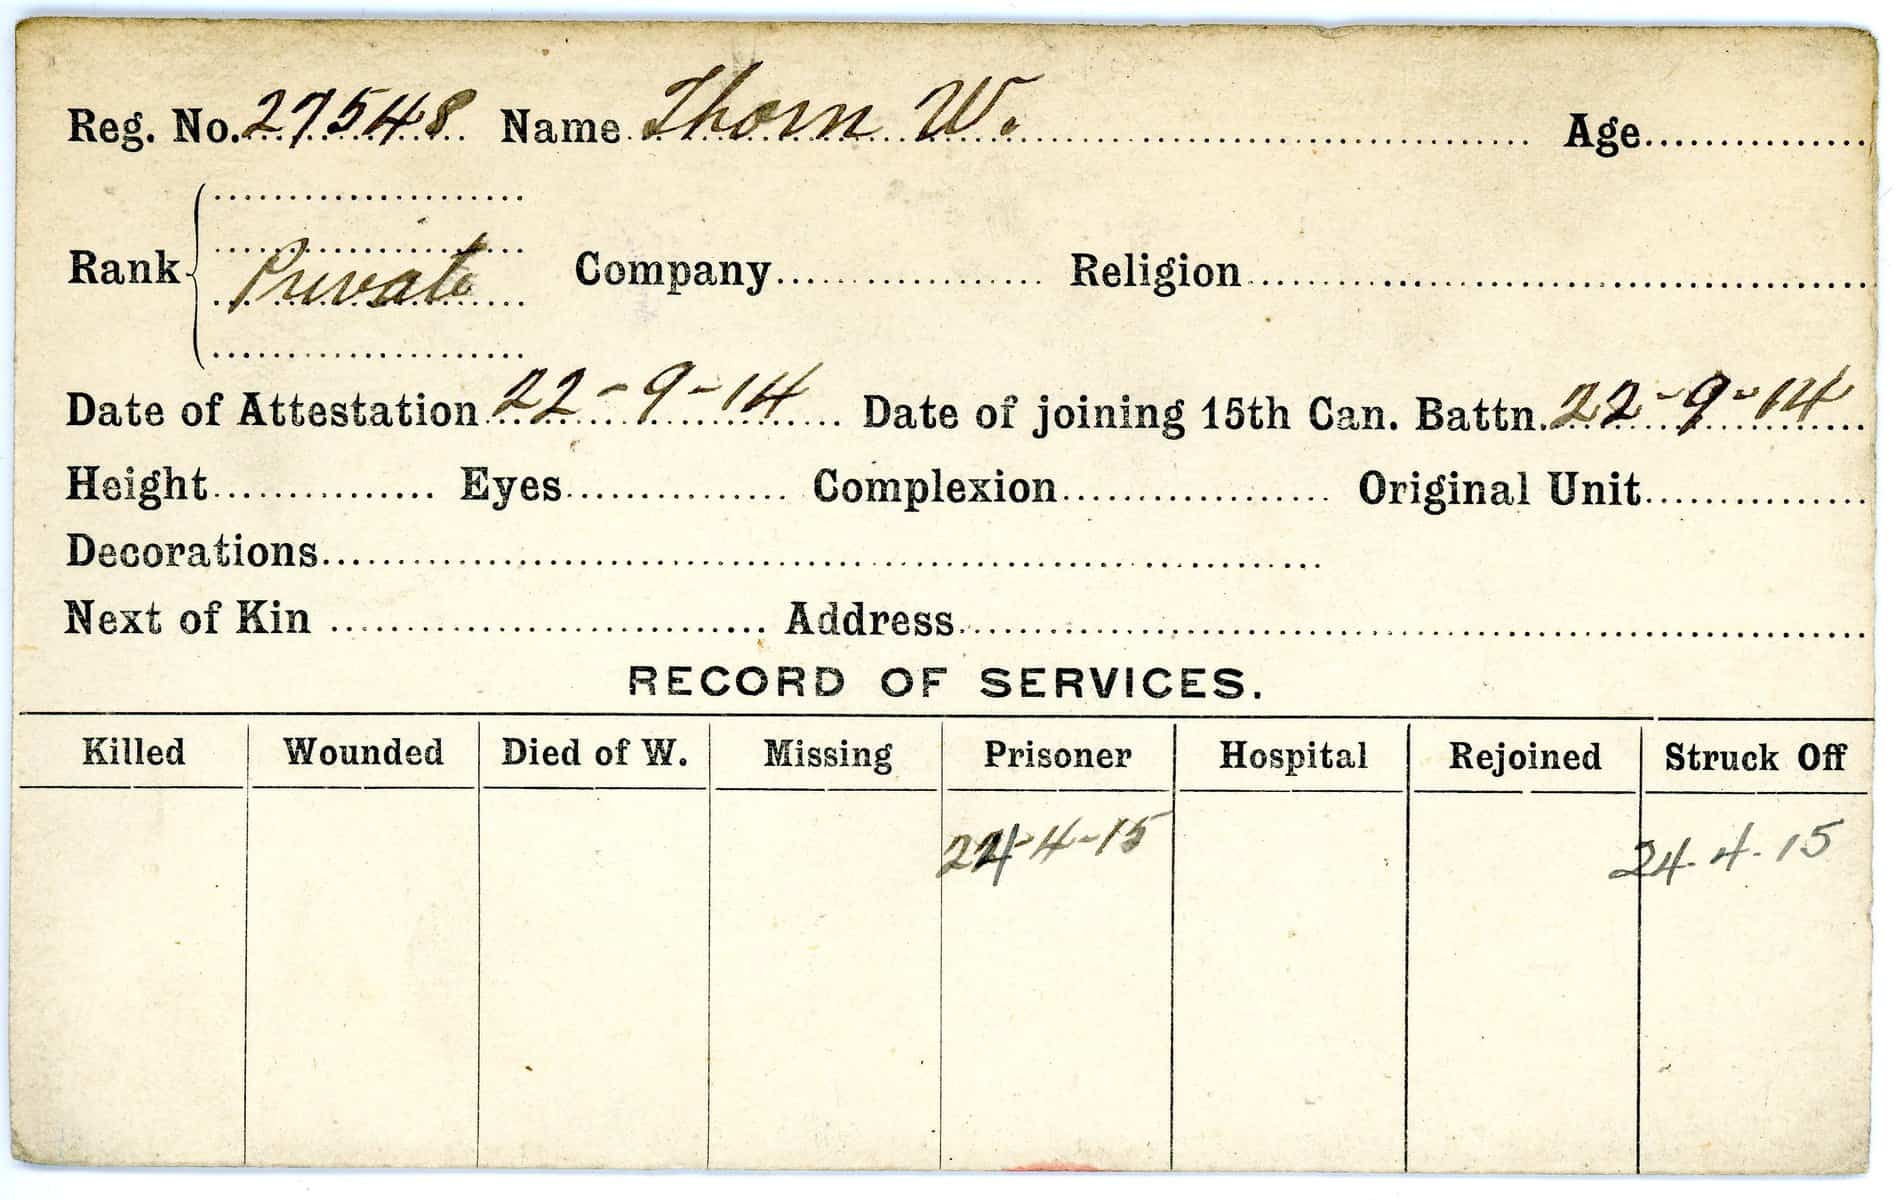 Reg. No. 27548 Name Thorn W. Age
Rank Private Company Religion
Date of Attestation 22-9-14 Date of joining 15th Can. Battn. 22-9-14
Height Eyes Complexion Original Unit
Decorations
Next of Kin Address
RECORD OF SERVICES.
Killed Wounded Died of W. Missing Prisoner Hospital Rejoined Struck Off
24-4-15 24.4.15